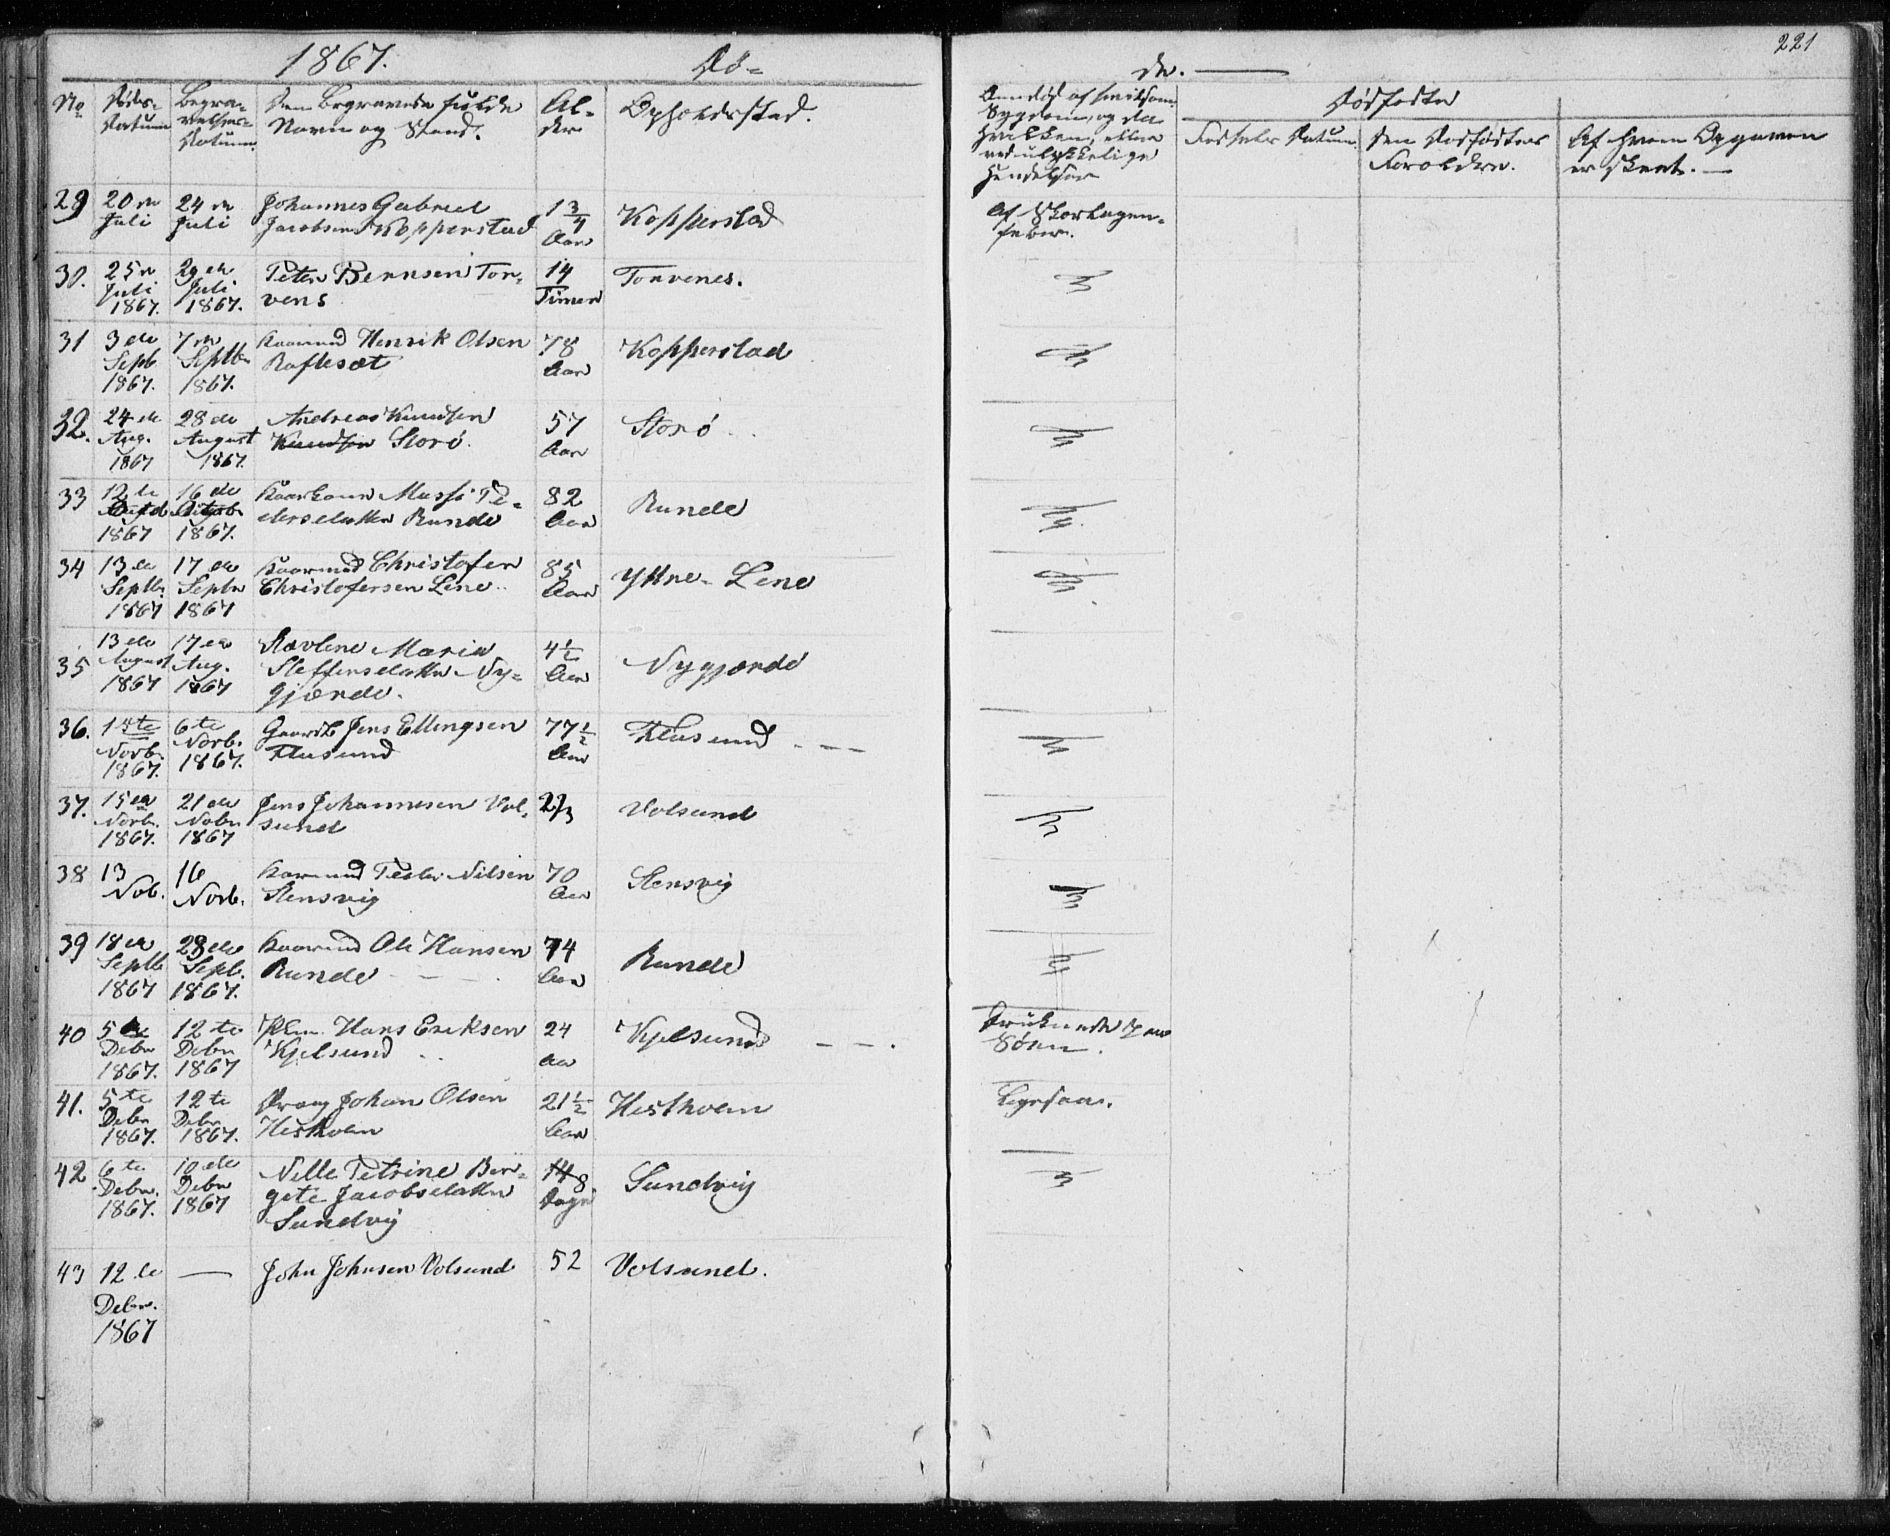 221
1867.
Dø=
de.
No
Døds-
Datum
Begra-
velses-
Datum
Den Begravedes fulde
Navn og Stand.
Al-
der
Opholdsstad.
Om død af smitsom
Sygdom, og da
hvilken, eller
ved ulykkelige
Hendelser
Dødfødte
Fødsels Datum
Den Dødfødtes
Foreldre.
Af hvem Opgaven
er skeet.
29 20de Juli
24de Juli
Johannes Gabriel
Jacobsen Kopperstad
1 3/4 Aar
Kopperstad
Af Skarlagen-
feber.
30. 25de Juli 1867.
29de Juli 1867.
Peter Bernsen Tor-
venes
14 Timer
Torvenes.
31 3de Septb 1867.
7de Septbr 1867.
Kaarmd Henrik Olsen
Raftesæt
78 Aar
Kopperstad
32. 24de Aug. 1867
28de August 1867.
Andreas Knudsen
Knudsen Storø.
57 Aar
Storø
33 12te 1867
16de 1867.
Kaarkone Pe-
dersdatter Runde
82 Aar
Runde
34 13de Septbr 1867
17de Sepbr 1867
Kaarmd Christofer
Christofersen Lene
85 Aar
Yttre-Lene
35 13de August 1867
17de Aug. 1867
Maria
Steffensdatter Ny-
gjærde.
4 1/2 Aar
Nygjærde
36. 1ste Novbr. 1867.
6te Novb. 1867.
Gaardb Jens Ellingsen
Flusund
77 1/2 Aar
Flusund
37. 15de Novbr. 1867.
21de Nobr 1867
Jens Johannesen Vol-
sund
2/3
Volsund
38 13 Nob.
16 Novb.
Karmand Peder Nilsen
Stensvig
70 Aar
Stensvig
39 18de Septb 1867
28de Sepb. 1867.
Kaarmd Ole Hansen
Runde
74 Aar
Runde
40 5te Debr 1867.
12te Debr 1867
Hans Eriksen
Kjelsund
24 Aar
Kjelsund
Druknede paa
Søen.
41. 5te Debr 1867.
12te Debr 1867.
Dreng Johan Olsen
Hestholm
21 1/2 Aar
Hestholm
Ligesaa.
42. 6te Debr. 1867.
10de Debr 1867
Nille Petrine Ber-
gete Jacobsdatter
Sundvig
14 8 Dage
Sundvig
43 12te Debr. 1867
—
John Johnsen Volsund
52
Volsund.